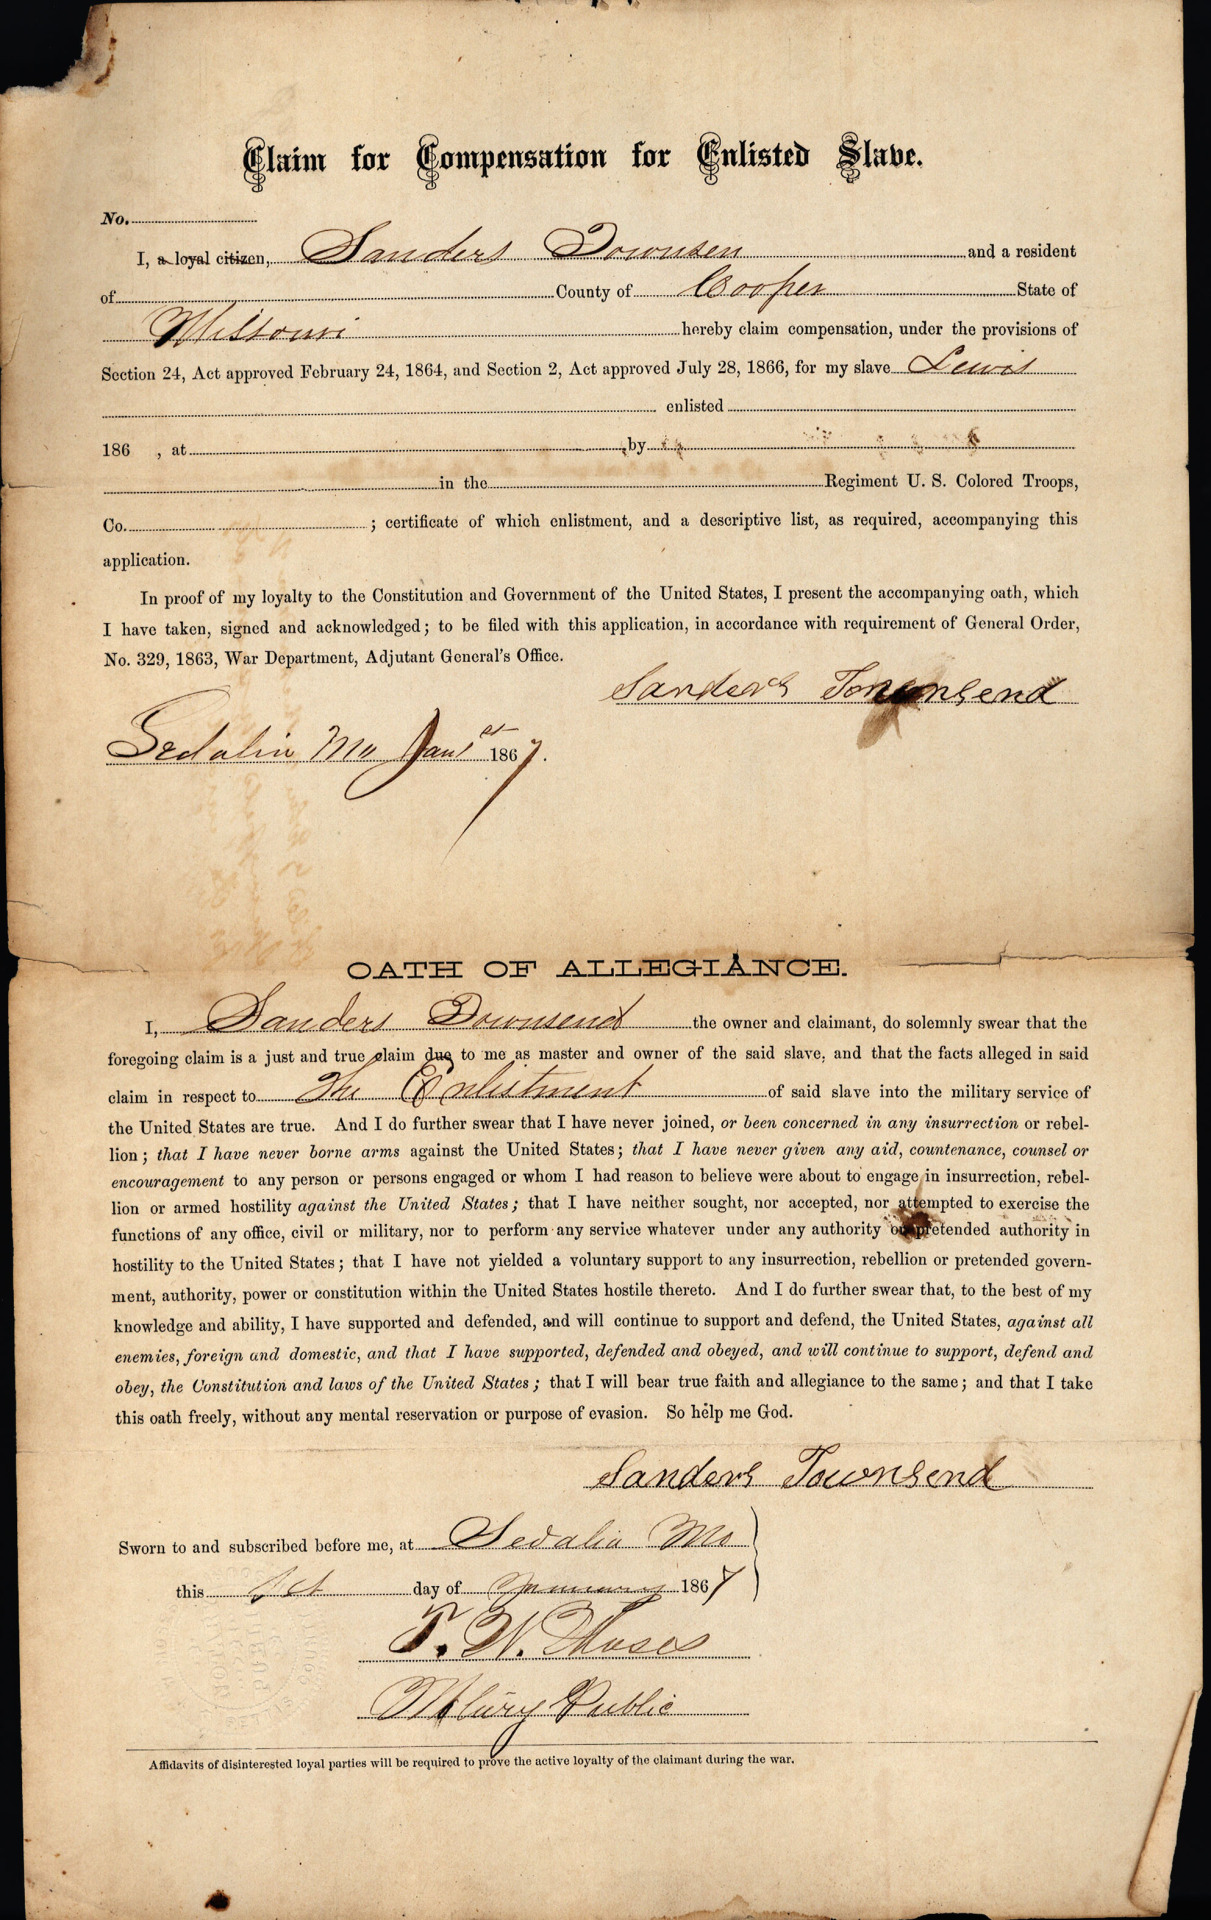 Claim for Compensation for Enlisted Slave.
No.
I, a loyal citizen, Sanders Townsen and a resident
of County of Cooper State of
Missouri hereby claim compensation, under the provisions of
Section 24, Act approved February 24, 1864, and Section 2, Act approved July 28, 1866, for my slave Lewis
enlisted
186 , at by
in the Regiment U. S. Colored Troops,
Co. ; certificate of which enlistment, and a descriptive list, as required, accompanying this
application.
In proof of my loyalty to the Constitution and Government of the United States, I present the accompanying oath, which
I have taken, signed and acknowledged; to be filed with this application, in accordance with requirement of General Order,
No. 329, 1863, War Department, Adjutant General's Office.
Sanders Townsend
Sedalia Mo Jan 1st 1867.
OATH OF ALLEGIANCE.
I, Sanders Townsend the owner and claimant, do solemnly swear that the
foregoing claim is a just and true claim due to me as master and owner of the said slave, and that the facts alleged in said
claim in respect to The Enlistment of said slave into the military service of
the United States are true. And I do further swear that I have never joined, or been concerned in any insurrection or rebel-
lion; that I have never borne arms against the United States; that I have never given any aid, countenance, counsel or
encouragement to any person or persons engaged or whom I had reason to believe were about to engage in insurrection, rebel-
lion or armed hostility against the United States; that I have neither sought, nor accepted, nor attempted to exercise the
functions of any office, civil or military, nor to perform any service whatever under any authority or pretended authority in
hostility to the United States; that I have not yielded a voluntary support to any insurrection, rebellion or pretended govern-
ment, authority, power or constitution within the United States hostile thereto. And I do further swear that, to the best of my
knowledge and ability, I have supported and defended, and will continue to support and defend, the United States, against all
enemies, foreign and domestic, and that I have supported, defended and obeyed, and will continue to support, defend and
obey, the Constitution and laws of the United States; that I will bear true faith and allegiance to the same; and that I take
this oath freely, without any mental reservation or purpose of evasion. So help me God.
Sanders Townsend
Sworn to and subscribed before me, at Sedalia Mo
this 1st day of January 1867
T. W. Moses
Notary Public
Affidavits of disinterested loyal parties will be required to prove the active loyalty of the claimant during the war.